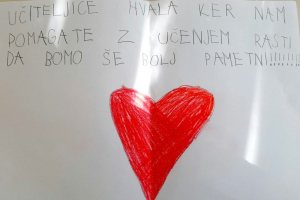 UČITELJICE HVALA KER NAM
POMAGATE Z UČENJEM RASTI
DA BOMO ŠE BOLJ PAMETNI!!!!!!!